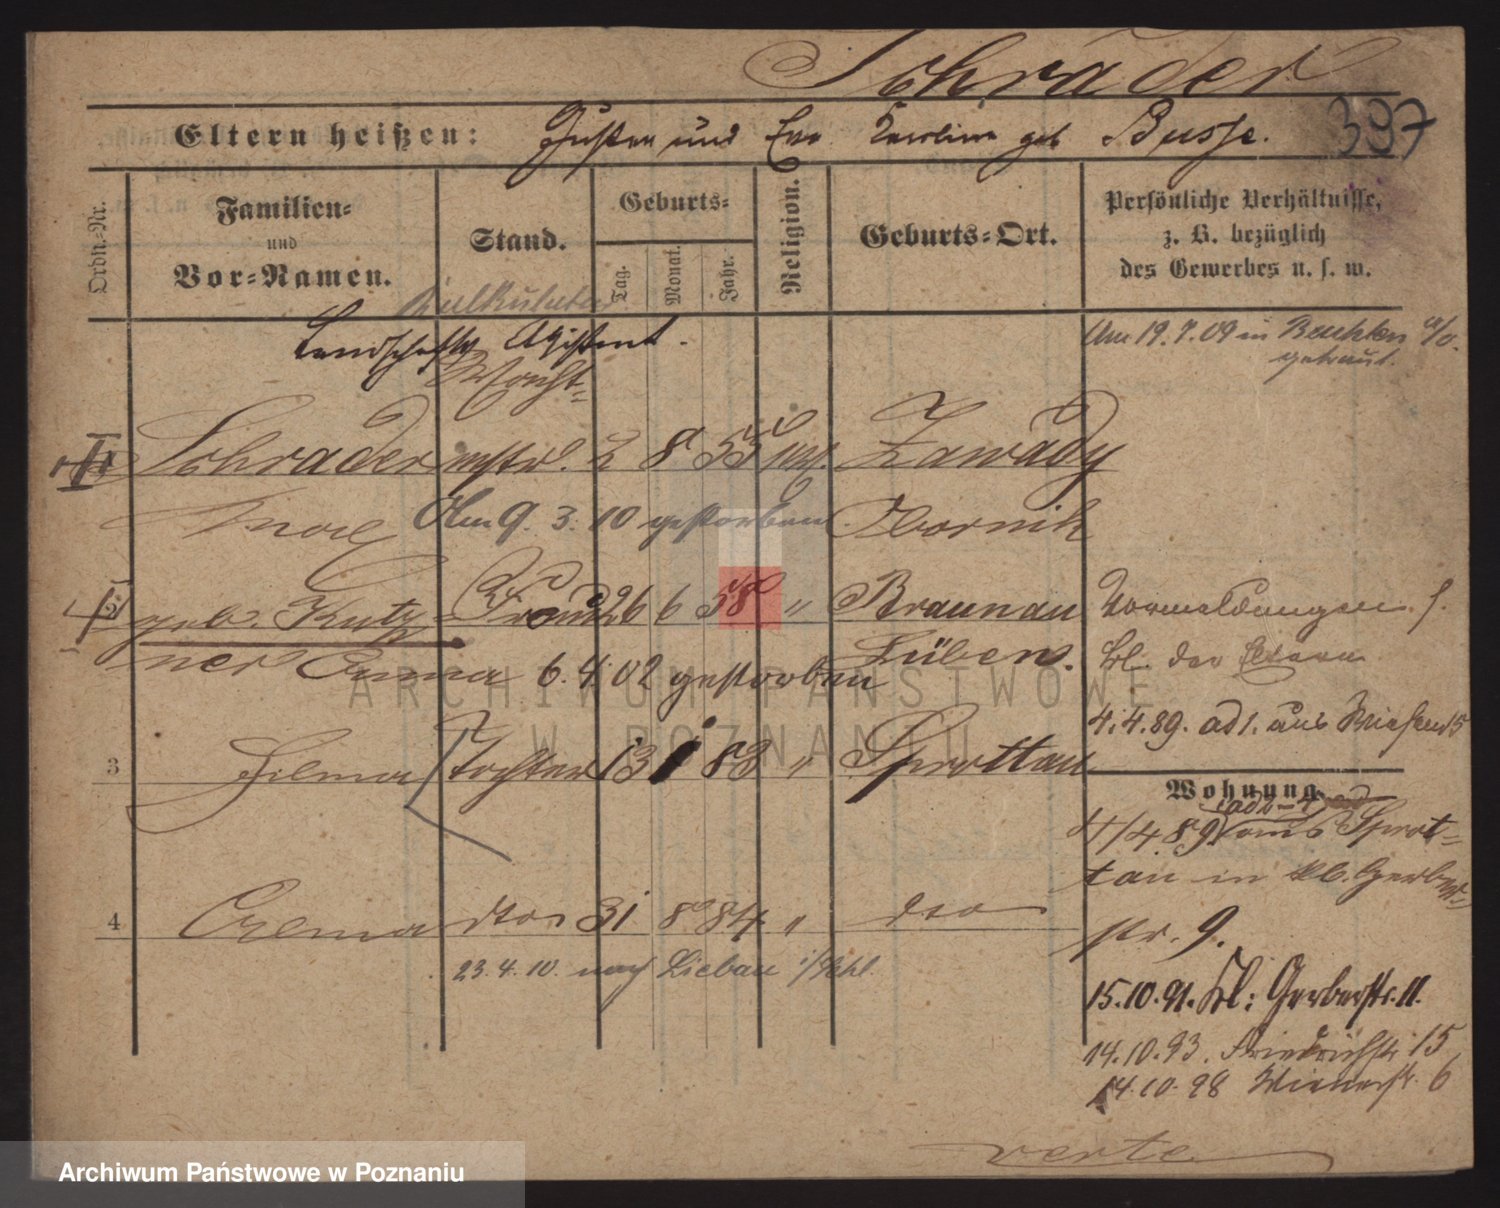 Schrader
Eltern heißen: Gustav und Eva Karoline geb Busse. 397
Ordn.-Nr.
Familien-
und
Vor-Namen.
Stand.
Geburts-
Tag.
Monat.
Jahr.
Religion.
Geburts-Ort.
Persönliche Verhältnisse,
z. B. bezüglich
des Gewerbes u. s. w.
Kalkulator
Landschafts Assistent.
Am 19.7.09 in Beuthen a/O.
getraut.
Schrader 2 8 55 Zawady
Am 9. 3. 10 gestorben. Obornik
2 geb. Kutz- Frau 26 6 58 " Braunau
ner Anna 6.4.02 gestorben Lüben.
Vormeldungen s.
Bl. der Eltern
4.4.89. ad 1. aus
3 Helma Tochter 13 1 83 " Sprottau
Wohnung
4/4 89 ad 2-4 aus Sprot-
tau in Kl. Gerber-
str. 9.
4 Erema dto 31 8 84 " dto
23.4.10. nach Liebau i/Schl.
15.10.91. Kl: Gerberstr. 11.
14.10.93. Friedrichstr 15
14.10.98 Wienerstr. 6
verte
ARCHIWUM PAŃSTWOWE
W POZNANIU
Archiwum Państwowe w Poznaniu